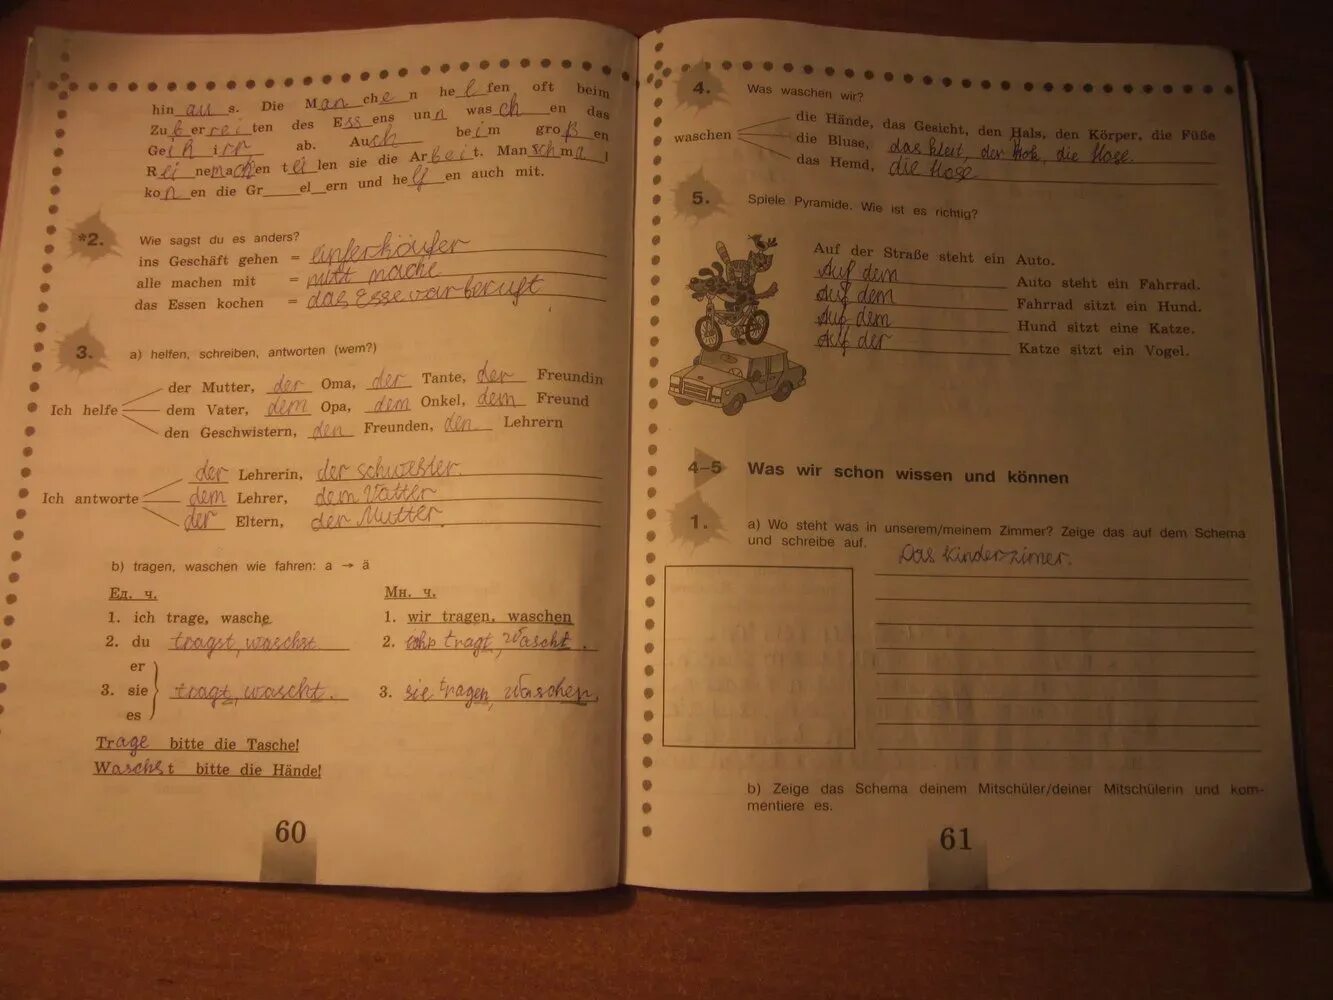 hin au s. Die M an ch e n he l fen oft beim
Zu b er rei ten des E ss ens un n was ch en das
Ge ih irr ab. Au ch be i m gro ß en
R ei nemachen t ei len sie die Ar bei t. Man schma l
ko n en die Gr___el_ern und he lf en auch mit.
*2. Wie sagst du es anders?
ins Geschäft gehen =
alle machen mit = mitt mache
das Essen kochen =
3. a) helfen, schreiben, antworten (wem?)
der Mutter, der Oma, der Tante, der Freundin
Ich helfe dem Vater, dem Opa, dem Onkel, dem Freund
den Geschwistern, den Freunden, den Lehrern
der Lehrerin, der schwester.
Ich antworte dem Lehrer, dem Vatter
der Eltern, der Mutter
b) tragen, waschen wie fahren: a → ä
Ед. ч. Мн. ч.
1. ich trage, wasche 1. wir tragen, waschen
2. du tragst, waschst 2. tragt, wascht.
er
3. sie tragt, wascht. 3. sie tragen, waschen.
es
Trage bitte die Tasche!
Waschst bitte die Hände!
60
4. Was waschen wir?
die Hände, das Gesicht, den Hals, den Körper, die Füße
waschen die Bluse, das kleit, der Rok, die Hose.
das Hemd, die Hose
5. Spiele Pyramide. Wie ist es richtig?
Auf der Straße steht ein Auto.
Auf dem Auto steht ein Fahrrad.
Auf dem Fahrrad sitzt ein Hund.
Auf dem Hund sitzt eine Katze.
Auf der Katze sitzt ein Vogel.
4–5 Was wir schon wissen und können
1. a) Wo steht was in unserem/meinem Zimmer? Zeige das auf dem Schema
und schreibe auf. Das Kinderzimer.
b) Zeige das Schema deinem Mitschüler/deiner Mitschülerin und kom-
mentiere es.
61